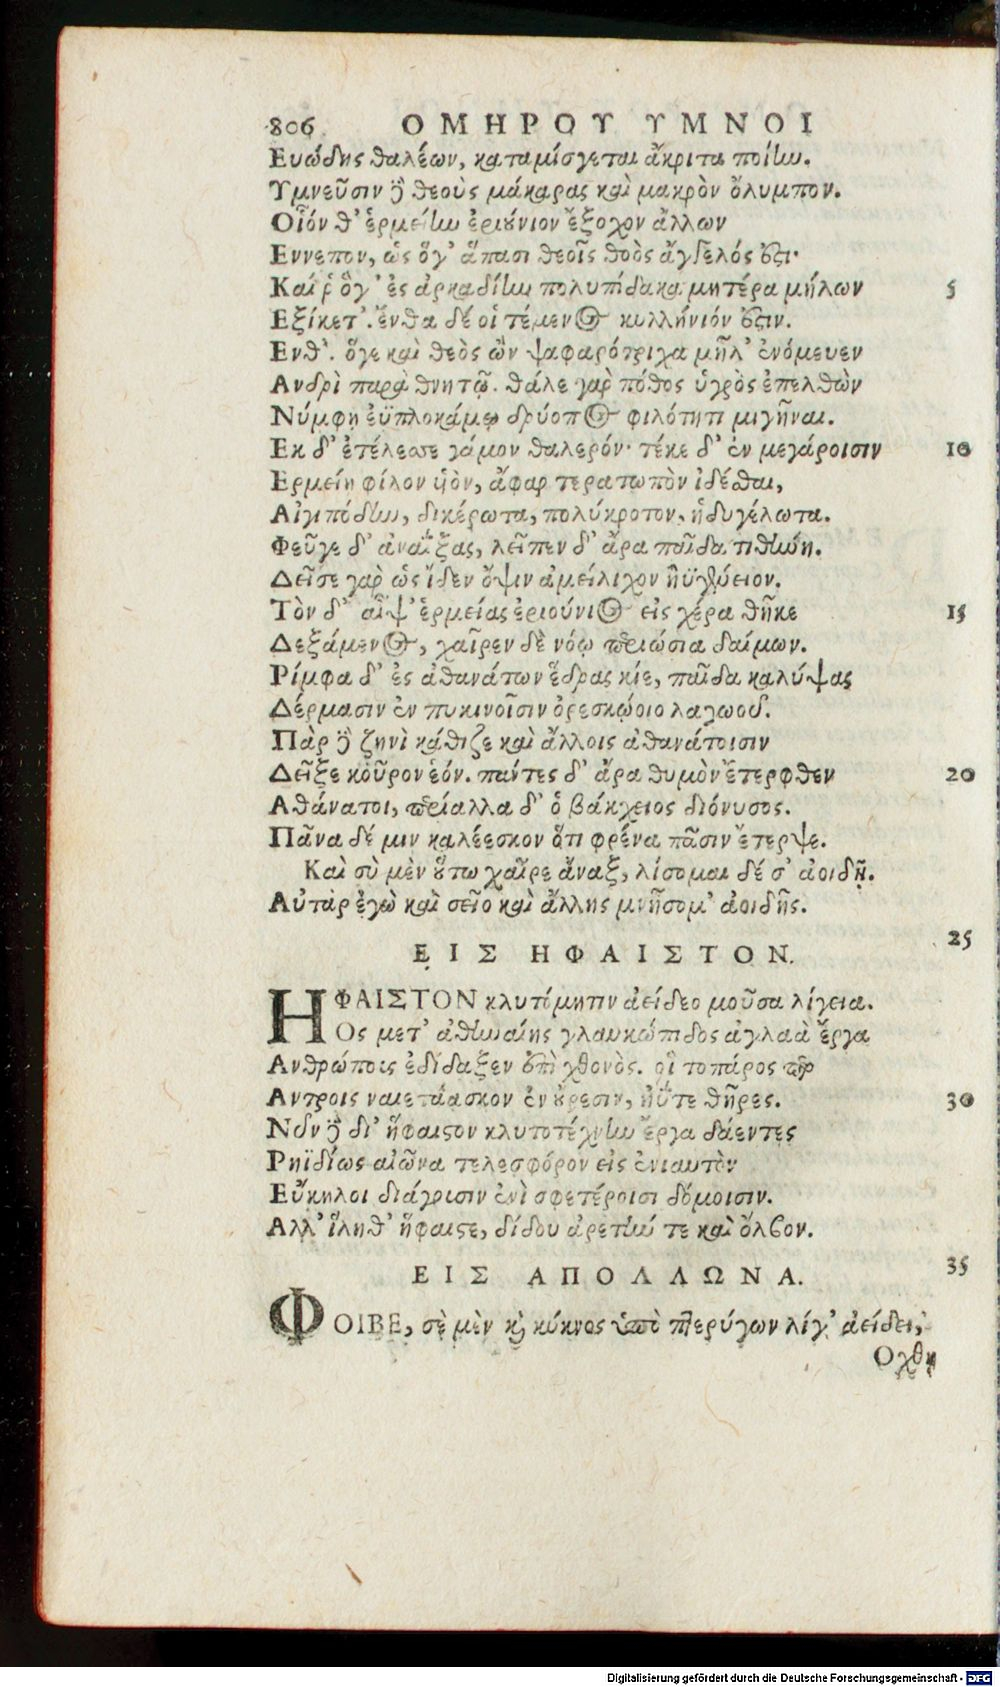 806 ΟΜΗΡΟΥ ΥΜΝΟΙ
Ευώδης θαλέων, καταμίσγεται ἄκριτα ποίην.
Υμνεῦσιν ἢ θεοὺς μάκαρας καὶ μακρὸν ὄλυμπον.
Οἷόν θ' ἑρμείην ἐριούνιον ἔξοχον ἄλλων
Εννεπον, ὡς ὅγ' ἅπασι θεοῖς θοὸς ἄγγελός ἐστι·
Καί ῥ ὃγ' ἐς ἀρκαδίην πολυπίδακα μητέρα μήλων 5
Εξίκετ'. ἔνθα δέ οἱ τέμενος κυλλήνιόν ἐστιν.
Ενθ'. ὅγε καὶ θεὸς ὢν ψαφαρότριχα μῆλ' ἐνόμευεν
Ανδρὶ παρὰ θνητῷ. θάλε γὰρ πόθος ὑγρὸς ἐπελθὼν
Νύμφῃ ἐϋπλοκάμῳ δρύοπος φιλότητι μιγῆναι.
Εκ δ' ἐτέλεσσε γάμον θαλερόν· τέκε δ' ἐν μεγάροισιν 10
Ερμείῃ φίλον υἱὸν, ἄφαρ τερατωπὸν ἰδέσθαι,
Αἰγιπόδην, δικέρωτα, πολύκροτον, ἡδυγέλωτα.
Φεῦγε δ' ἀναΐξας, λεῖπεν δ' ἄρα παῖδα τιθήνη.
Δεῖσε γὰρ ὡς ἴδεν ὄψιν ἀμείλιχον ἠϋγένειον.
Τὸν δ' αἶψ' ἑρμείας ἐριούνιος εἰς χέρα θῆκε 15
Δεξάμενος, χαῖρεν δὲ νόῳ περιώσια δαίμων.
Ρίμφα δ' ἐς ἀθανάτων ἕδρας κίε, παῖδα καλύψας
Δέρμασιν ἐν πυκινοῖσιν ὀρεσκῴοιο λαγωοῦ.
Πὰρ ἢ ζηνὶ κάθιζε καὶ ἄλλοις ἀθανάτοισιν
Δεῖξε κοῦρον ἑόν. πάντες δ' ἄρα θυμὸν ἔτερφθεν 20
Αθάνατοι, περίαλλα δ' ὁ βάκχειος διόνυσος.
Πᾶνα δέ μιν καλέεσκον ὅτι φρένα πᾶσιν ἔτερψε.
Καὶ σὺ μὲν οὕτω χαῖρε ἄναξ, λίσομαι δέ σ' ἀοιδῇ.
Αὐτὰρ ἐγὼ καὶ σεῖο καὶ ἄλλης μνήσομ' ἀοιδῆς.
ΕΙΣ ΗΦΑΙΣΤΟΝ. 25
ΗΦΑΙΣΤΟΝ κλυτόμητιν ἀείδεο μοῦσα λίγεια.
Ος μετ' ἀθηναίης γλαυκώπιδος ἀγλαὰ ἔργα
Ανθρώποις ἐδίδαξεν ἐπὶ χθονὸς. οἳ τοπάρος περ
Αντροις ναιετάασκον ἐν οὔρεσιν, ἠΰτε θῆρες. 30
Νῦν ἢ δι' ἥφαιστον κλυτοτέχνην ἔργα δάεντες
Ρηϊδίως αἰῶνα τελεσφόρον εἰς ἐνιαυτὸν
Εὔκηλοι διάγουσιν ἐνὶ σφετέροισι δόμοισιν.
Αλλ' ἵληθ' ἥφαιστε, δίδου ἀρετήν τε καὶ ὄλβον.
ΕΙΣ ΑΠΟΛΛΩΝΑ. 35
ΦΟΙΒΕ, σὲ μὲν καὶ κύκνος ὑπὸ πτερύγων λίγ' ἀείδει,
Οχθῃ
Digitalisierung gefördert durch die Deutsche Forschungsgemeinschaft - DFG